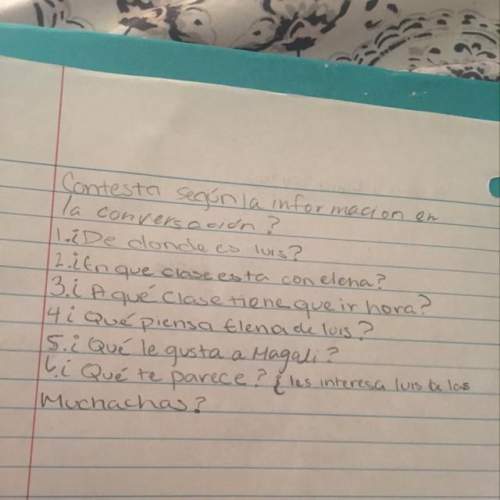 Contesta según la informacion en
la conversación?
1. ¿De donde es luis?
2. ¿En que clase esta con elena?
3. ¿A qué clase tiene que ir hora?
4 ¿Qué piensa Elena de luis?
5. ¿Qué le gusta a Magali?
6. ¿Qué te parece? ¿les interesa luis a las
Muchachas?